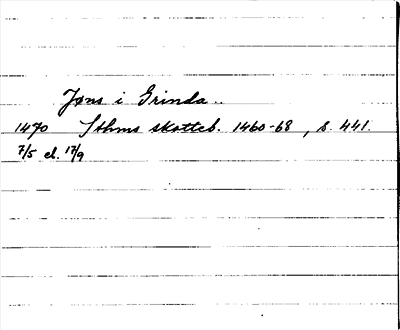 Jøns i Grinda..
1470 Sthms skotteb. 1460-68, s. 441.
7/5 el. 17/9